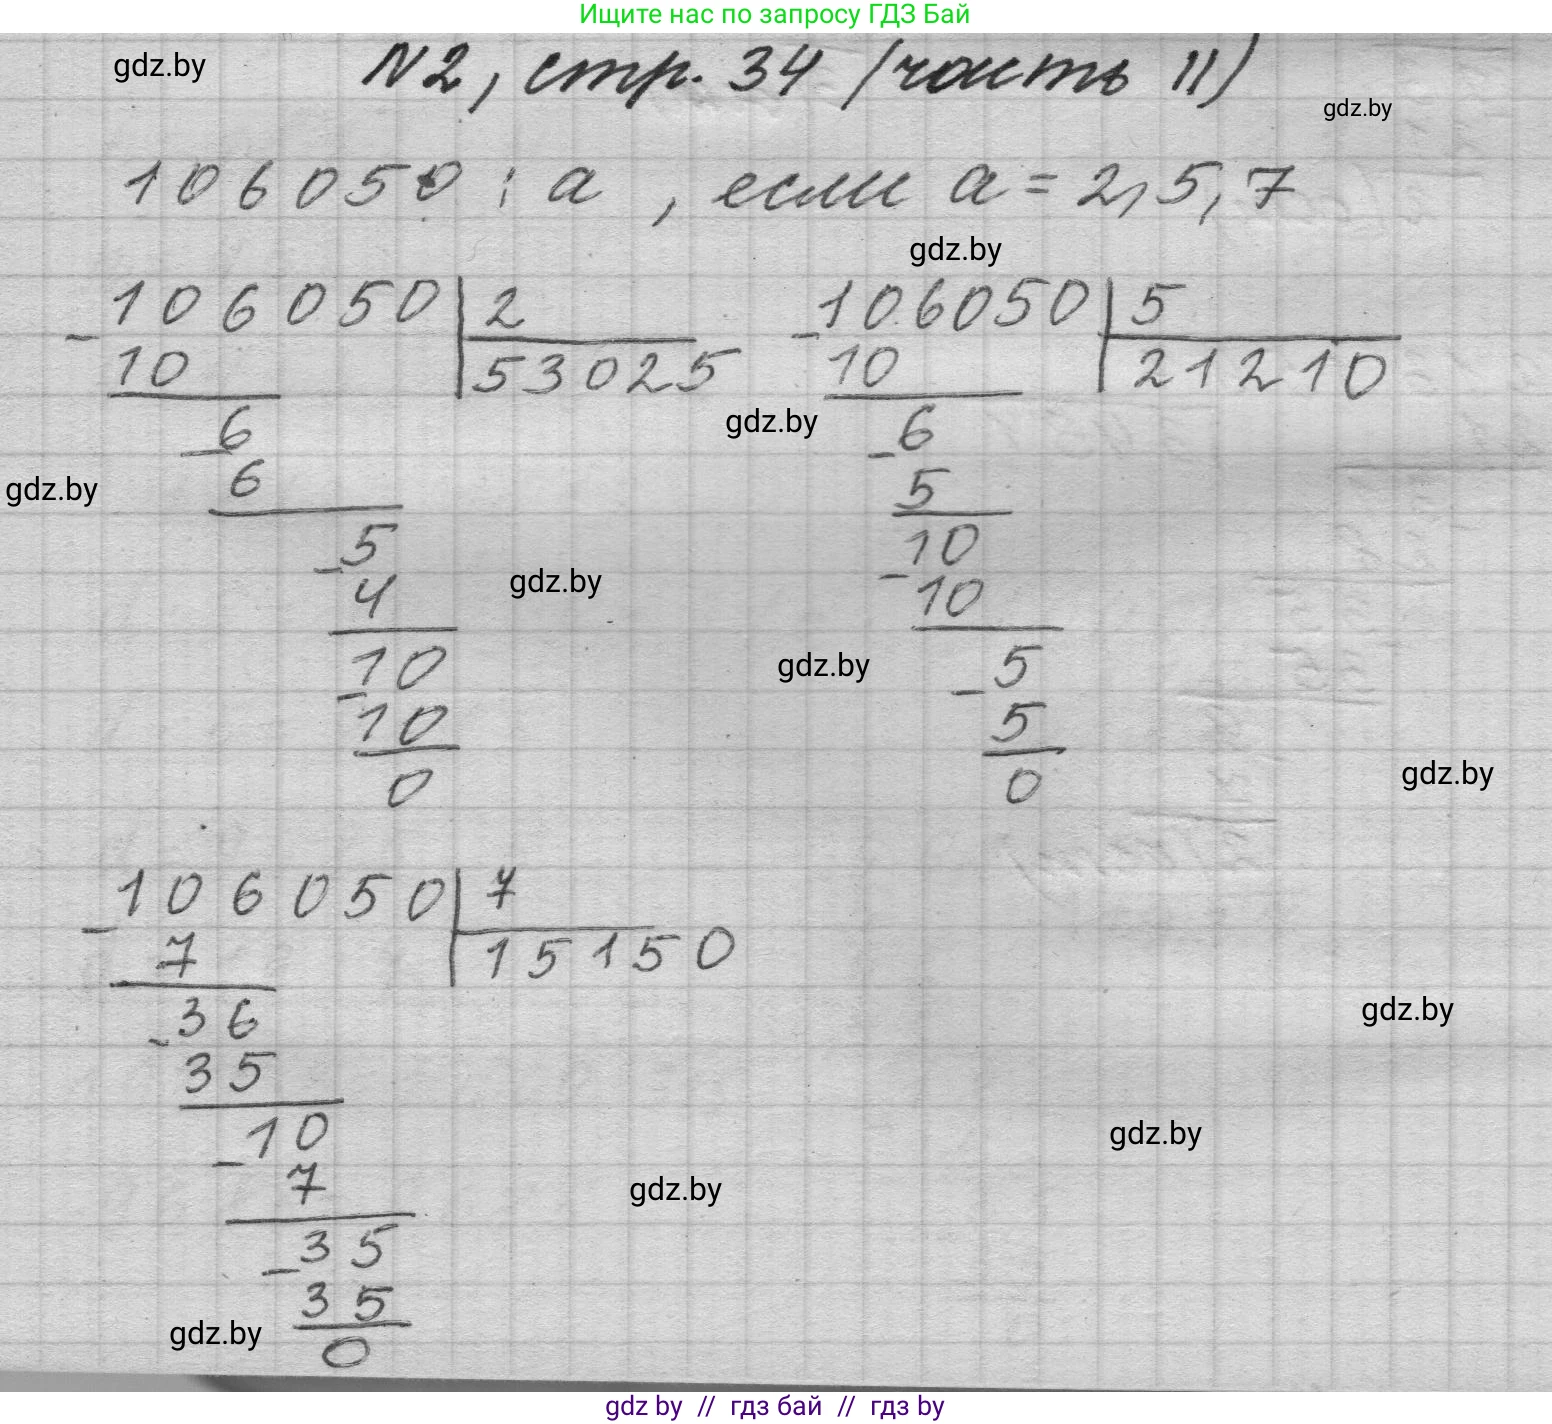 Ищите нас по запросу ГДЗ Бай
gdz.by
N2, стр. 34 (часть II)
gdz.by
106050 : a , если a = 2, 5, 7
gdz.by
106050 | 2
- 10 53025
6
- 6
5
- 4
10
- 10
0
106050 | 5
- 10 21210
6
- 5
10
- 10
5
- 5
0
gdz.by
gdz.by
gdz.by
gdz.by
gdz.by
106050 | 7
- 7 15150
36
- 35
10
- 7
35
- 35
0
gdz.by
gdz.by
gdz.by
gdz.by
gdz by // гдз бай // gdz by